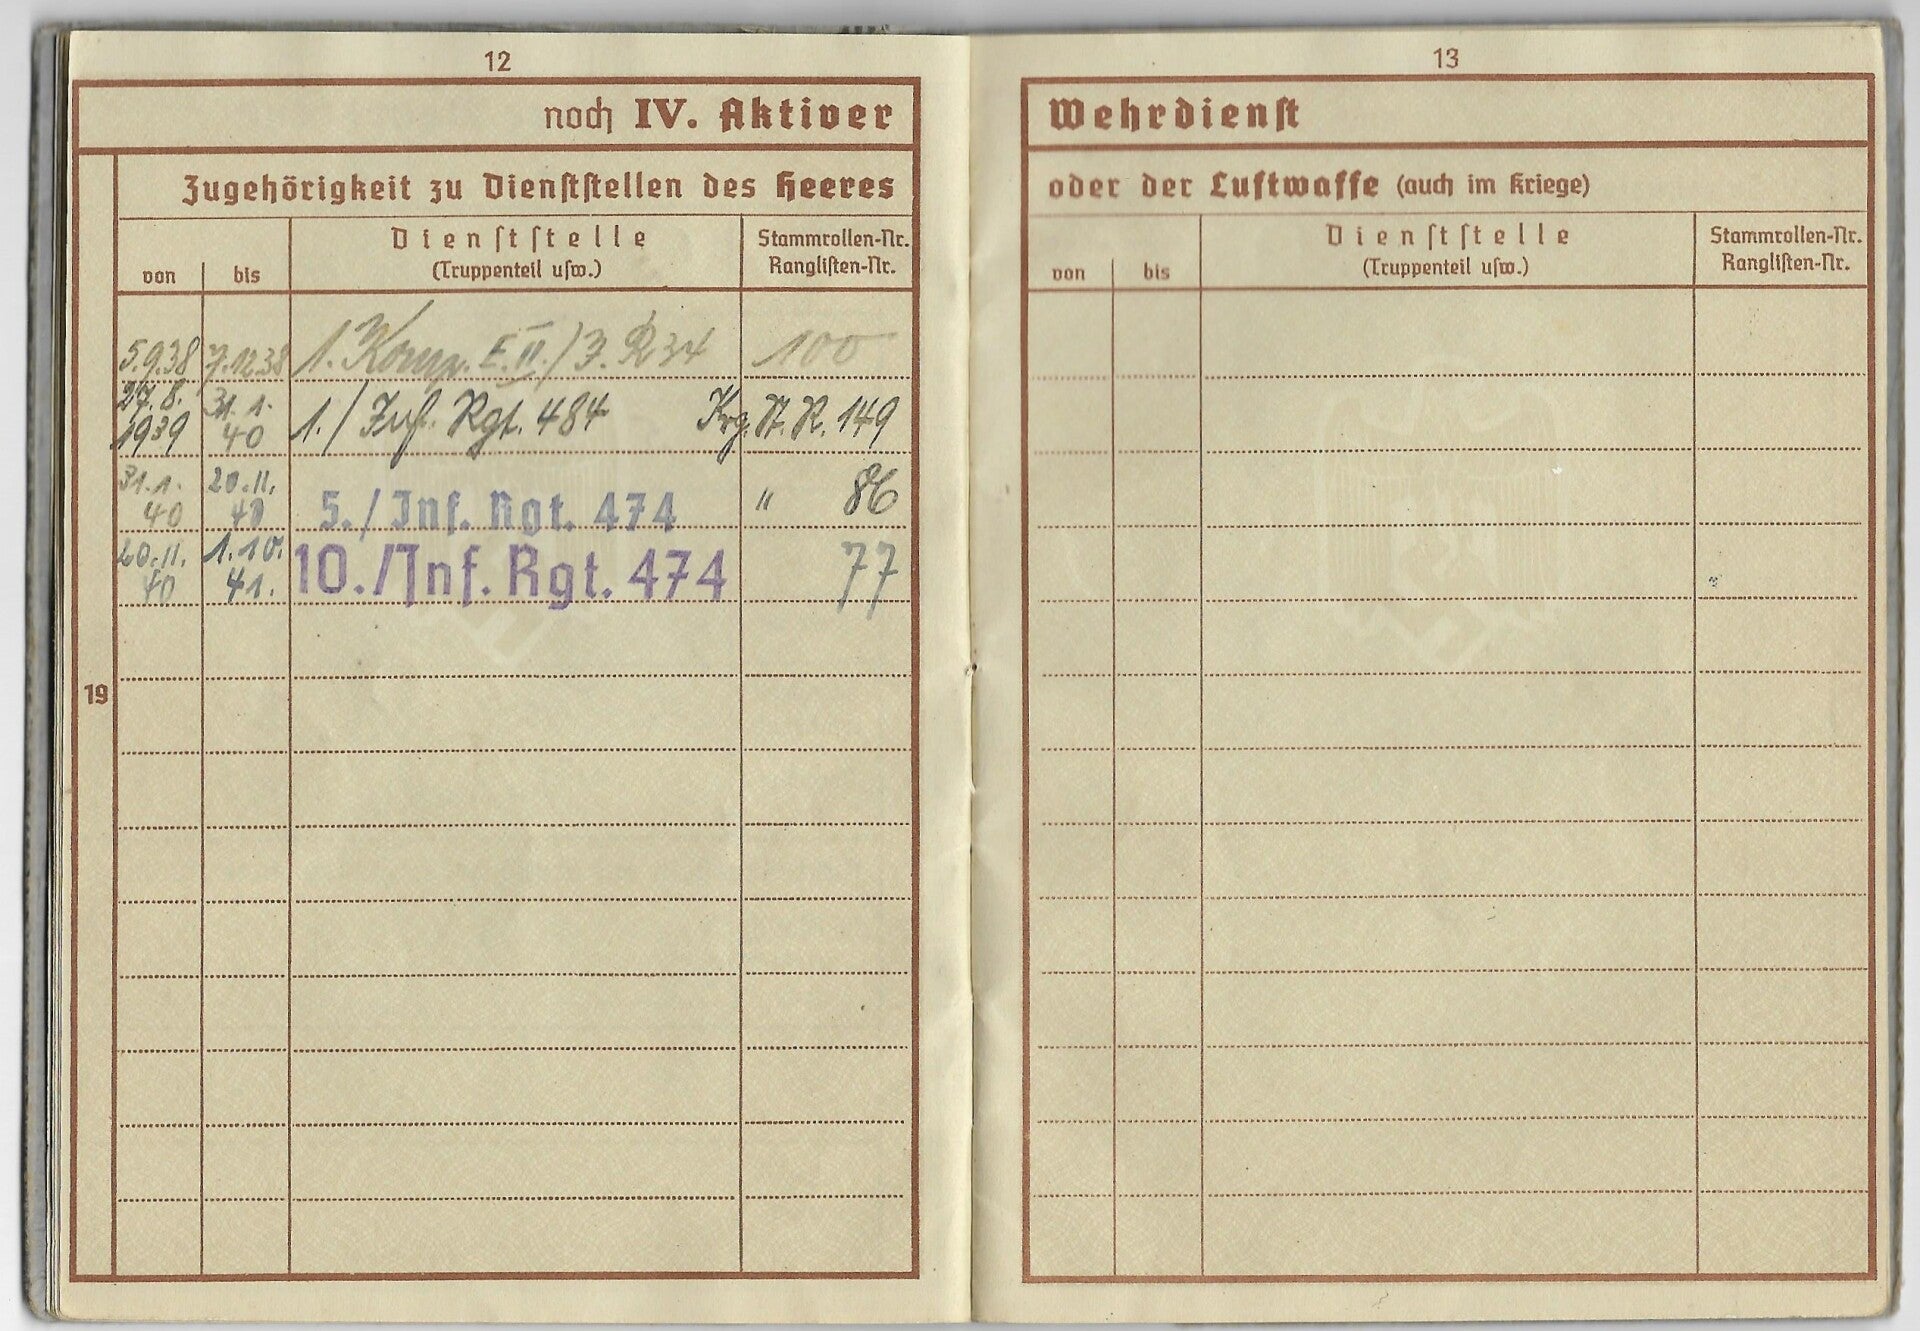 12
noch IV. Aktiver
Zugehörigkeit zu Dienststellen des Heeres
von
bis
Dienststelle
(Truppenteil usw.)
Stammrollen-Nr.
Ranglisten-Nr.
5.9.38 7.12.38 1. Komp. E. II./J.R 34 100
27.8. 1939 31.1. 40 1./ Inf. Rgt. 484 Krg. St. R. 149
31.1. 40 20.11. 40 5./Inf. Rgt. 474 " 86
20.11. 40 1.10. 41. 10./Inf. Rgt. 474 77
19
13
Wehrdienst
oder der Luftwaffe (auch im Kriege)
von
bis
Dienststelle
(Truppenteil usw.)
Stammrollen-Nr.
Ranglisten-Nr.